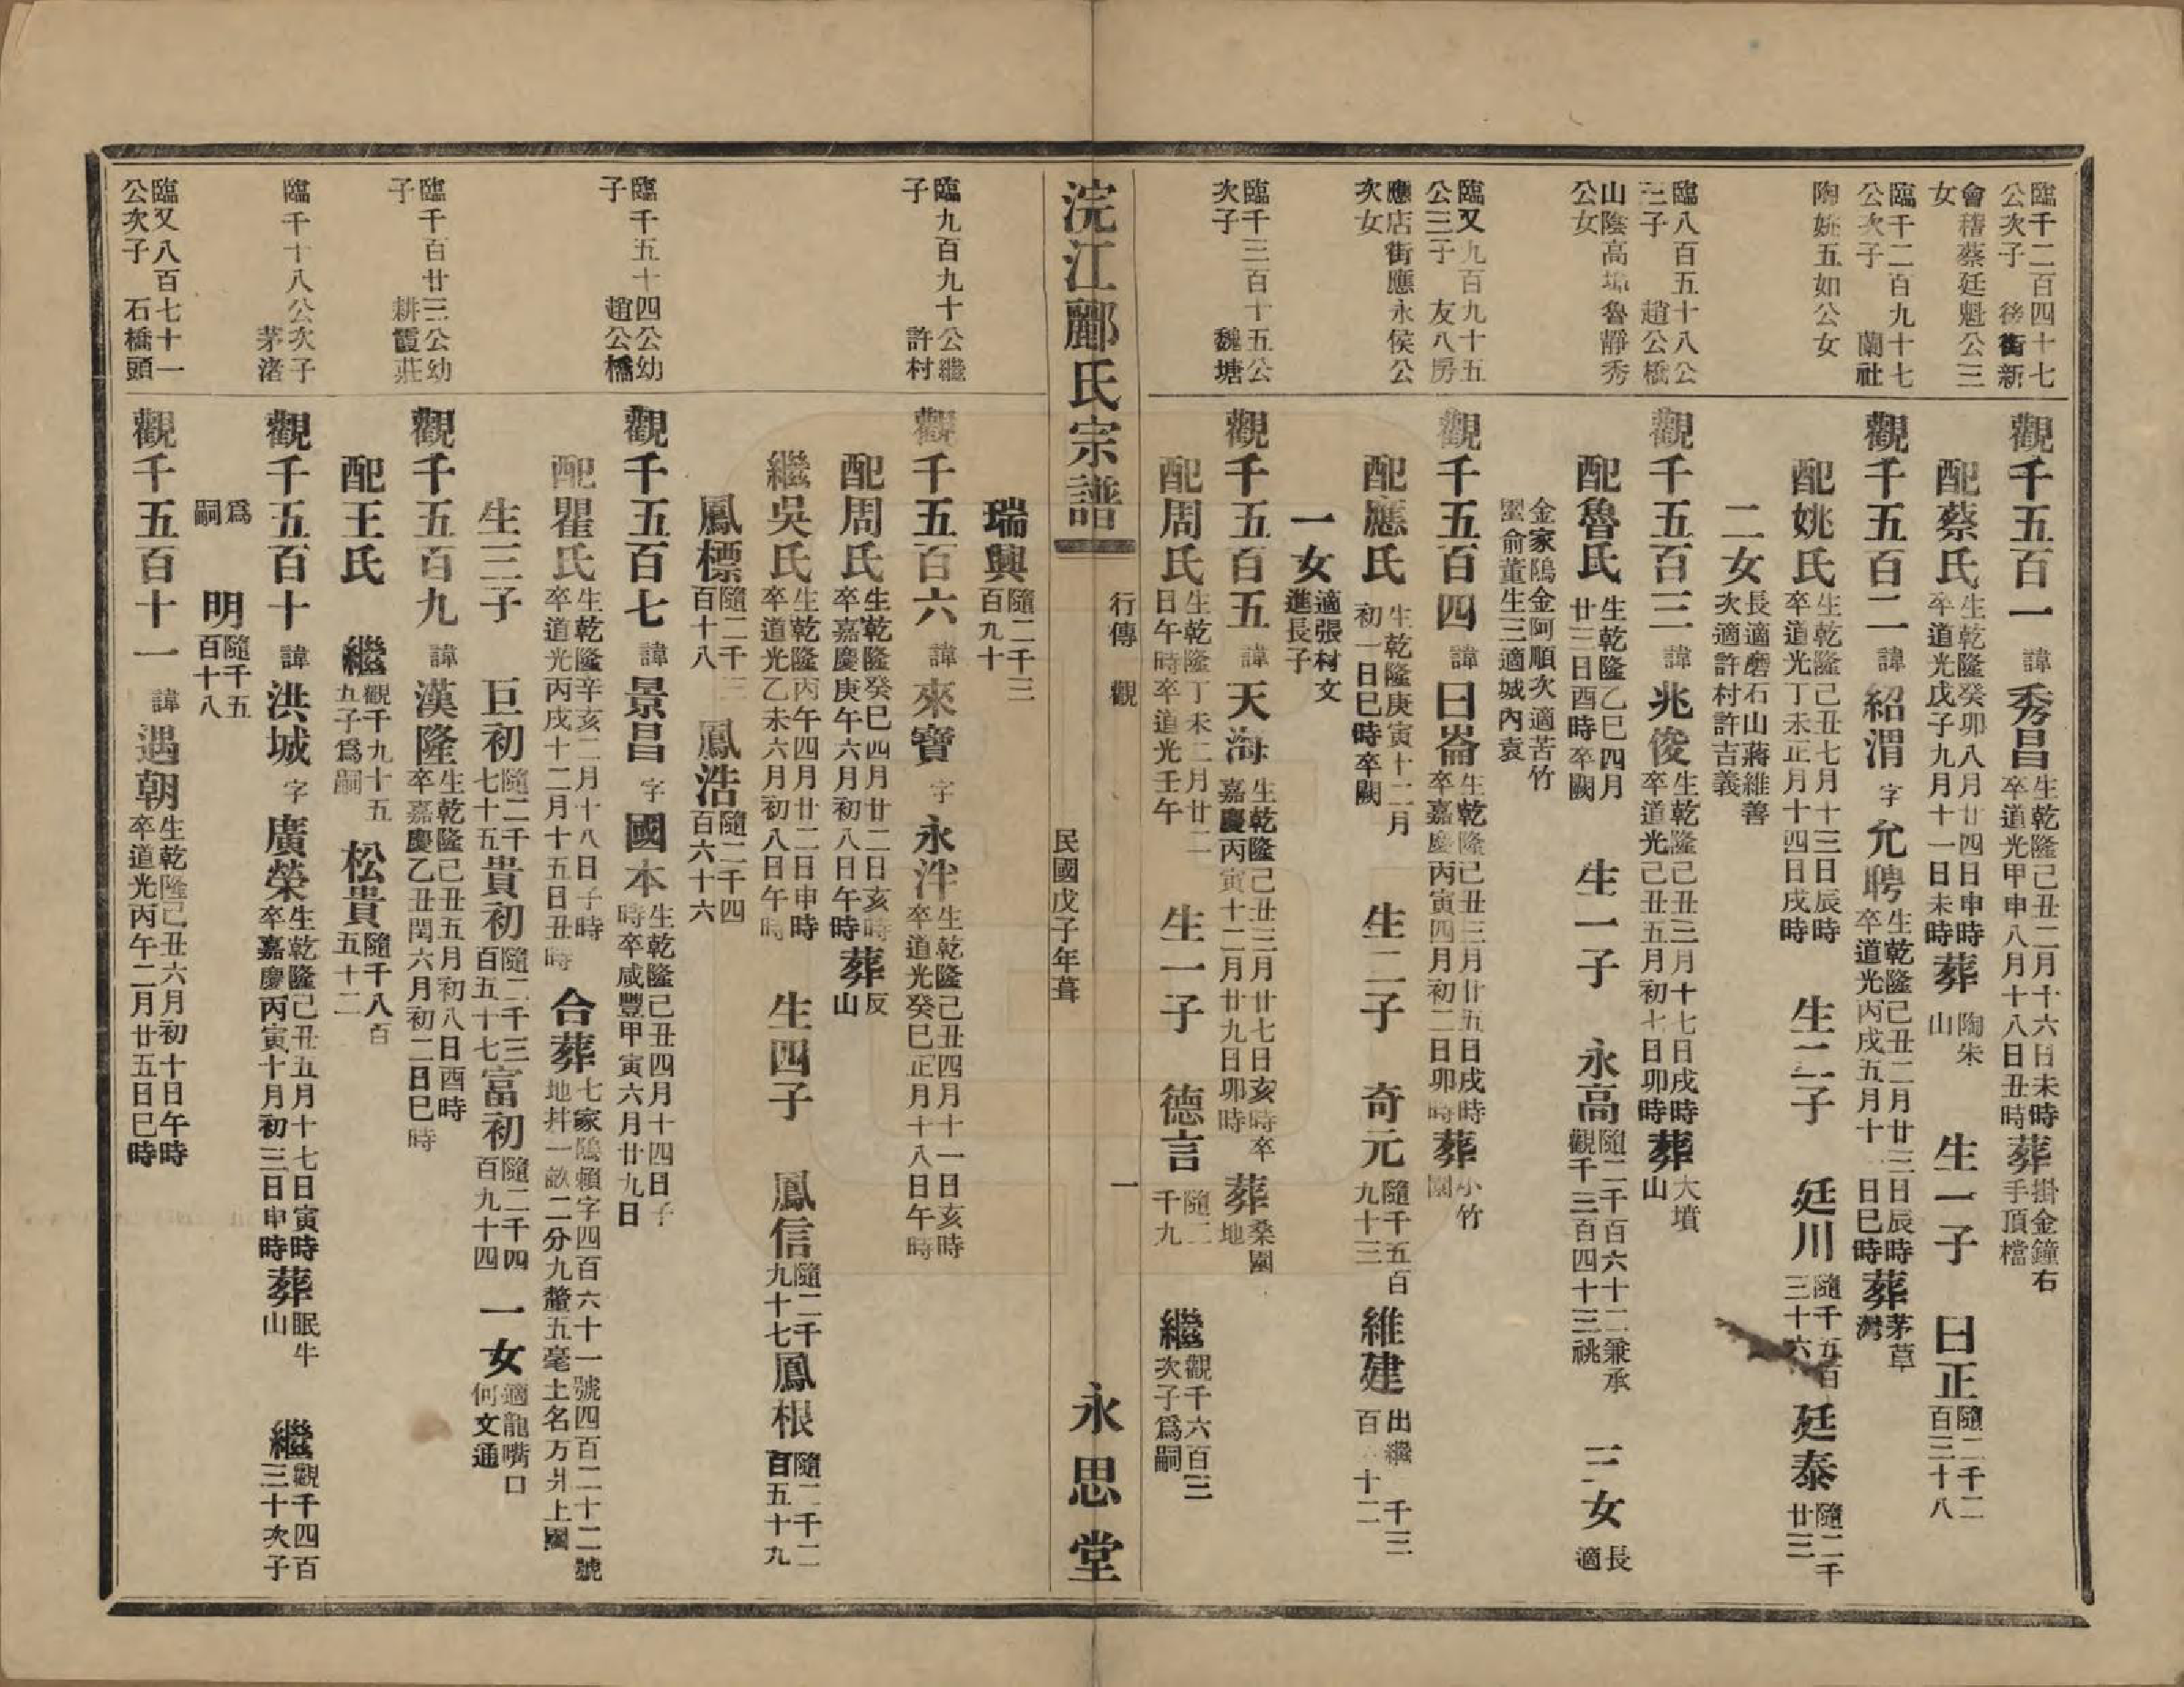 臨千二百四十七
公次子　後街新
觀千五百一　諱秀昌 生乾隆己丑二月十六日未時 卒道光甲申八月十八日丑時 葬 掛金鐘右 手頂檔
會稽蔡廷魁公三
女
配蔡氏 生乾隆癸卯八月廿四日申時 卒道光戊子九月十一日未時 葬 陶朱 山　生一子　日正 隨二千二 百三十八
臨千二百九十七
公次子　蘭社
觀千五百二　諱紹渭　字允聘 生乾隆己丑二月廿三日辰時 卒道光丙戌五月十一日巳時 葬 茅草 灣
陶姚五如公女
配姚氏 生乾隆己丑七月十三日辰時 卒道光丁未正月十四日戌時　生二子　廷川 隨千五百 三十六　廷泰 隨二千 廿三
二女 長適磨石山蔣維善 次適許村許吉義
臨八百五十八公
三子　趙公橋
觀千五百三　諱兆俊 生乾隆己丑三月十七日戌時 卒道光己丑五月初七日卯時 葬 大墳 山
山陰高塢魯靜秀
公女
配魯氏 生乾隆乙巳四月 廿三日酉時卒闕　生一子　永高 隨二千百六十二兼承 觀千三百四十三祧　三女 長 適
金家隖金阿順次適苦竹
塱俞董生三適城內袁
臨又九百九十五
公三子　友八房
觀千五百四　諱日崙 生乾隆己丑三月廿五日戌時 卒嘉慶丙寅四月初二日卯時 葬 小竹 園
應店街應永侯公
次女
配應氏 生乾隆庚寅十二月 初一日巳時卒闕　生二子　奇元 隨千五百 九十三　維建 出繼　千三 百 十二
一女 適張村文 進長子
臨千三百十五公
次子　魏塘
觀千五百五　諱天海 生乾隆己丑三月廿七日亥時卒 嘉慶丙寅十二月廿九日卯時　葬 桑園 地
配周氏 生乾隆丁未二月廿二 日午時卒道光壬午　生一子　德言 隨二 千九　繼 觀千六百三 次子爲嗣
浣江酈氏宗譜　行傳　觀　民國戊子年葺　一　永思堂
瑞興 隨二千三 百九十
臨九百九十公繼
子　許村
觀千五百六　諱來寶　字永泮 生乾隆己丑四月十一日亥時 卒道光癸巳正月十八日午時
配周氏 生乾隆癸巳四月廿二日亥時 卒嘉慶庚午六月初八日午時 葬 反 山
繼吳氏 生乾隆丙午四月廿二日申時 卒道光乙未六月初八日午時　生四子　鳳信 隨二千 九十七 鳳根 隨二千二 百五十九
鳳標 隨二千三 百十八　鳳浩 隨二千四 百六十六
臨千五十四公幼
子　趙公橋
觀千五百七　諱景昌　字國本 生乾隆己丑四月十四日子 時卒咸豐甲寅六月廿九日
配瞿氏 生乾隆辛亥二月十八日子時 卒道光丙戌十二月十五日丑時　合葬 七家隖賴字四百六十一號四百二十二號 地拜一畝二分九釐五毫土名方爿上園
生三子　巨初 隨二千 七十五 貴初 隨二千三 百五十七 富初 隨二千四 百九十四　一女 適龍嘴口 何文通
臨千百廿三公幼
子　耕霞莊
觀千五百九　諱漢隆 生乾隆己丑五月初八日酉時 卒嘉慶乙丑閏六月初二日巳時
配王氏　繼 觀千九十五 五子爲嗣　松貴 隨千八百 五十二
臨千十八公次子
茅渚
觀千五百十　諱洪城　字廣榮 生乾隆己丑五月十七日寅時 卒嘉慶丙寅十月初三日申時 葬 眠牛 山　繼 觀千四百 三十次子
爲嗣　明 隨千五 百十八
臨又八百七十一
公次子　石橋頭
觀千五百十一　諱遇朝 生乾隆己丑六月初十日午時 卒道光丙午二月廿五日巳時